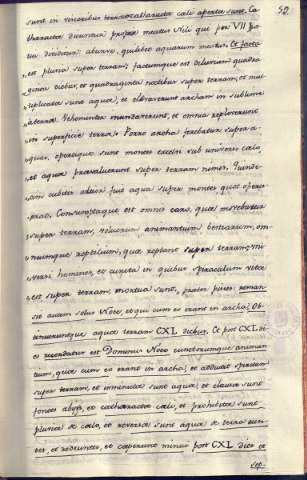 52.
sunt in visceribus terra cataracta celi aperta sunt. Ca
tharactas
divididitur abineo, quilibet aquarum meatus. Et facta
est pluvia super terram; factumque est diluvium quadra
ginta diebus, et quadraginta noctibus super terram, et mul
tiplicatae sunt aquae, et elevaverunt archam in sublime
a terra. Vehementer inundaverunt, et omnia repleverunt
in superficie terrae. Porro archa ferebatur supra a-
quas, opertique sunt montes excelsi sub universo caelo,
et aqua praevaluerunt super terram nimis. Quinde
cim cubitis altior fuit aqua super montes quos operu
erat. Consumptaque est omnis caro, quae movebatur
super terram, volucrum animantium bestiarum, om
niumque reptilium, quae reptant super terram; uni
versi homines, et cuncta in quibus spiraculum vitae
est super terram, mortua sunt, praeter pisces: reman
sit autem solus Noe, et qui cum eo erant in archa; Ob
tinueruntque aquae terram CXL diebus. Et post CXL di
es recordatus est Dominus Noe cunctorumque animan
tium, quae cum eo erant in archa; et adduxit spiritum
super terram, et imminutae sunt aquae; et clausi sunt
fontes abyssi, et catharactae caeli, et prohibitae sunt
pluviae de caelo, et reversae sunt aquae de terra eun
tes, et redeuntes, et coeperunt minui post CXL dies et
sep-